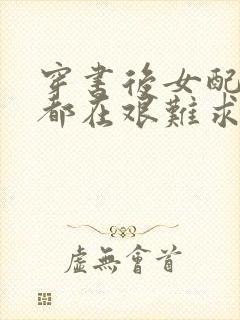 穿書後女配
都在艱難求
虛無會首